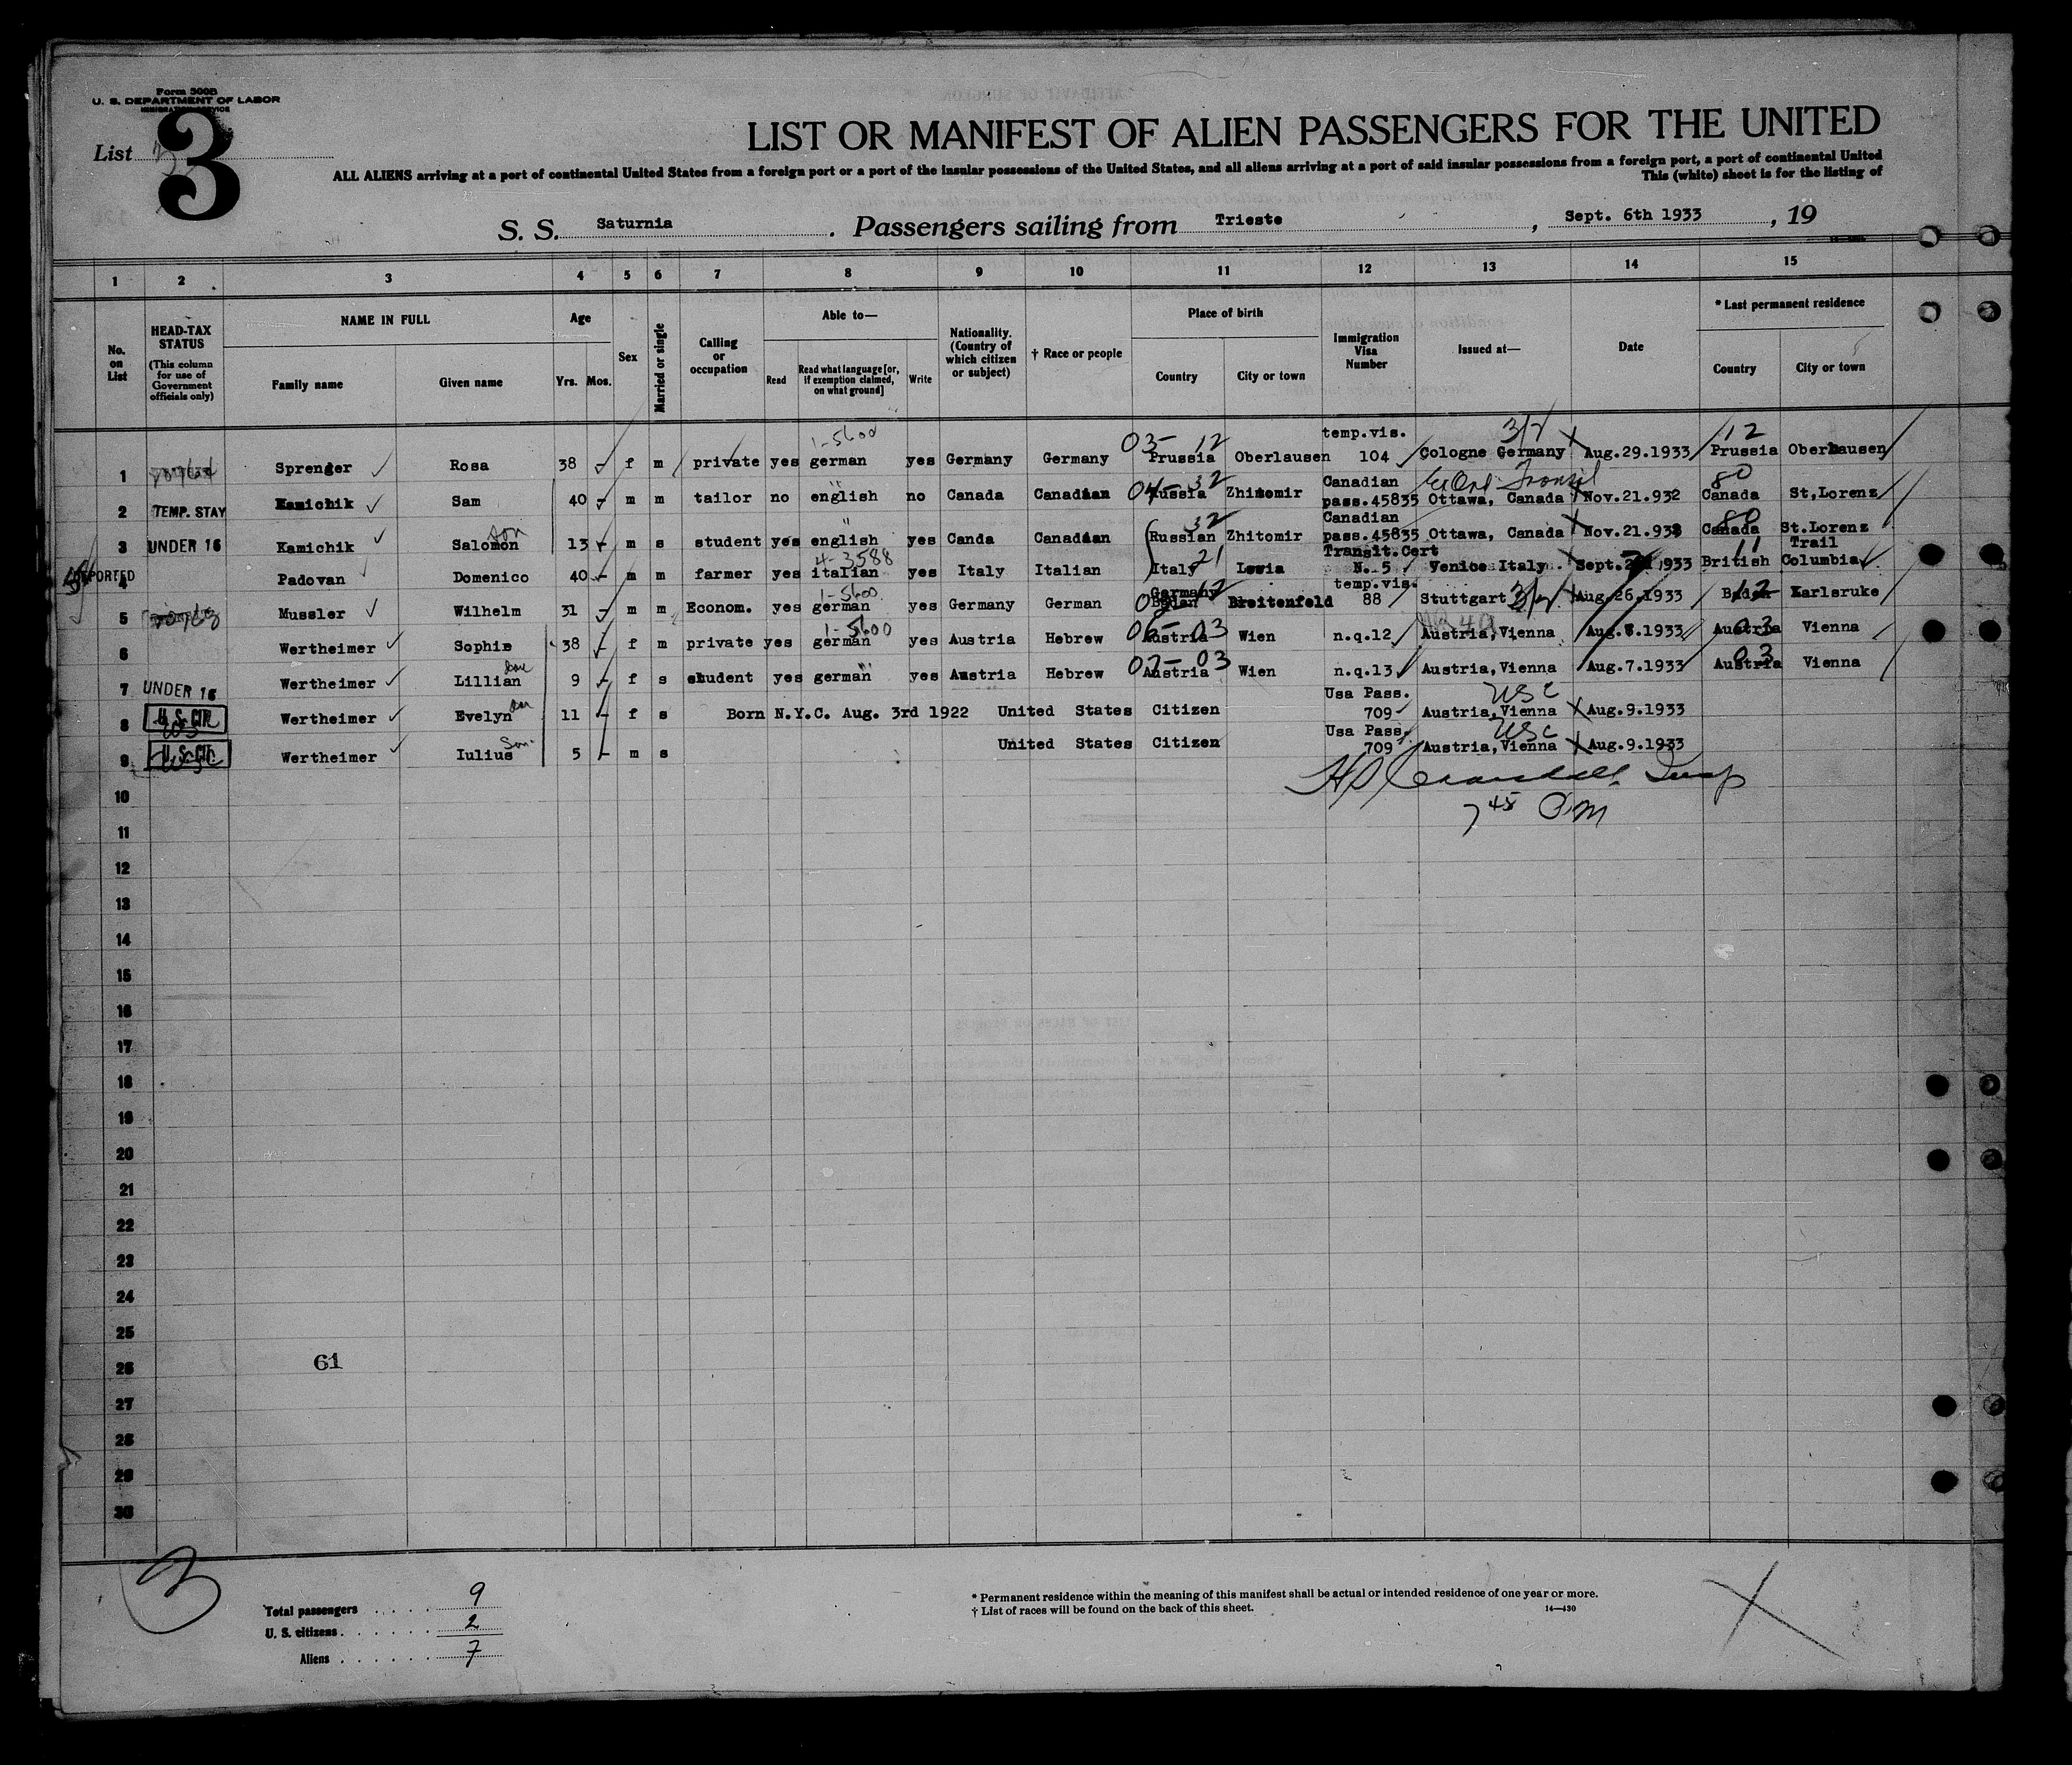 Form 500B
U. S. DEPARTMENT OF LABOR
IMMIGRATION SERVICE
List 3
LIST OR MANIFEST OF ALIEN PASSENGERS FOR THE UNITED
ALL ALIENS arriving at a port of continental United States from a foreign port or a port of the insular possessions of the United States, and all aliens arriving at a port of said insular possessions from a foreign port, a port of continental United
This (white) sheet is for the listing of
S. S. Saturnia . Passengers sailing from Trieste , Sept. 6th 1933 , 19
1 2 3 4 5 6 7 8 9 10 11 12 13 14 15
No. on List
HEAD-TAX STATUS (This column for use of Government officials only)
NAME IN FULL
Family name
Given name
Age
Yrs. Mos.
Sex
Married or single
Calling or occupation
Able to—
Read
Read what language [or, if exemption claimed, on what ground]
Write
Nationality. (Country of which citizen or subject)
† Race or people
Place of birth
Country
City or town
Immigration Visa Number
Issued at—
Date
* Last permanent residence
Country
City or town
1-5600 03- 12 temp.vis. 3/2 12
1 Sprenger Rosa 38 f m private yes german yes Germany Germany Prussia Oberlausen 104 Cologne Germany Aug.29.1933 Prussia Oberhausen
04- 32 Canadian Transit 80
2 TEMP. STAY Kamichik Sam 40 m m tailor no english no Canada Canadian Russia Zhitomir pass.45835 Ottawa, Canada Nov.21.932 Canada St,Lorenz
son 32 Canadian 80
3 UNDER 16 Kamichik Salomon 13 m s student yes english yes Canda Canadian Russian Zhitomir pass.45835 Ottawa, Canada Nov.21.932 Canada St.Lorenz
4-3588 21 Transit.Cert 11 Trail
4 Padovan Domenico 40 m m farmer yes italian yes Italy Italian Italy N. 5 Venice Italy Sept. 1933 British Columbia
1-5600 Germany 12 temp.vis. 3/2 12
5 Mussler Wilhelm 31 m m Econom. yes german yes Germany German Baden Breitenfeld 88 Stuttgart Aug.26.1933 Baden Karlsruke
1-5600 03 03
6 Wertheimer Sophie 38 f m private yes german yes Austria Hebrew Austria Wien n.q.12 Austria,Vienna Aug. .1933 Austria Vienna
03 03
7 UNDER 16 Wertheimer Lillian 9 f s student yes german yes Austria Hebrew Austria Wien n.q.13 Austria,Vienna Aug.7.1933 Austria Vienna
Usa Pass. USC
8 U. S. CIT. Wertheimer Evelyn 11 f s Born N.Y.C. Aug. 3rd 1922 United States Citizen 709 Austria,Vienna Aug.9.1933
Son Usa Pass. USC
9 U. S. CIT. Wertheimer Iulius 5 m s United States Citizen 709 Austria,Vienna Aug.9.1933
10
7 45 PM
11
12
13
14
15
16
17
18
19
20
21
22
23
24
25
26 61
27
28
29
30
3
Total passengers . . . . . 9
U. S. citizens . . . . . . 2
Aliens . . . . . . 7
* Permanent residence within the meaning of this manifest shall be actual or intended residence of one year or more.
† List of races will be found on the back of this sheet. 14—430